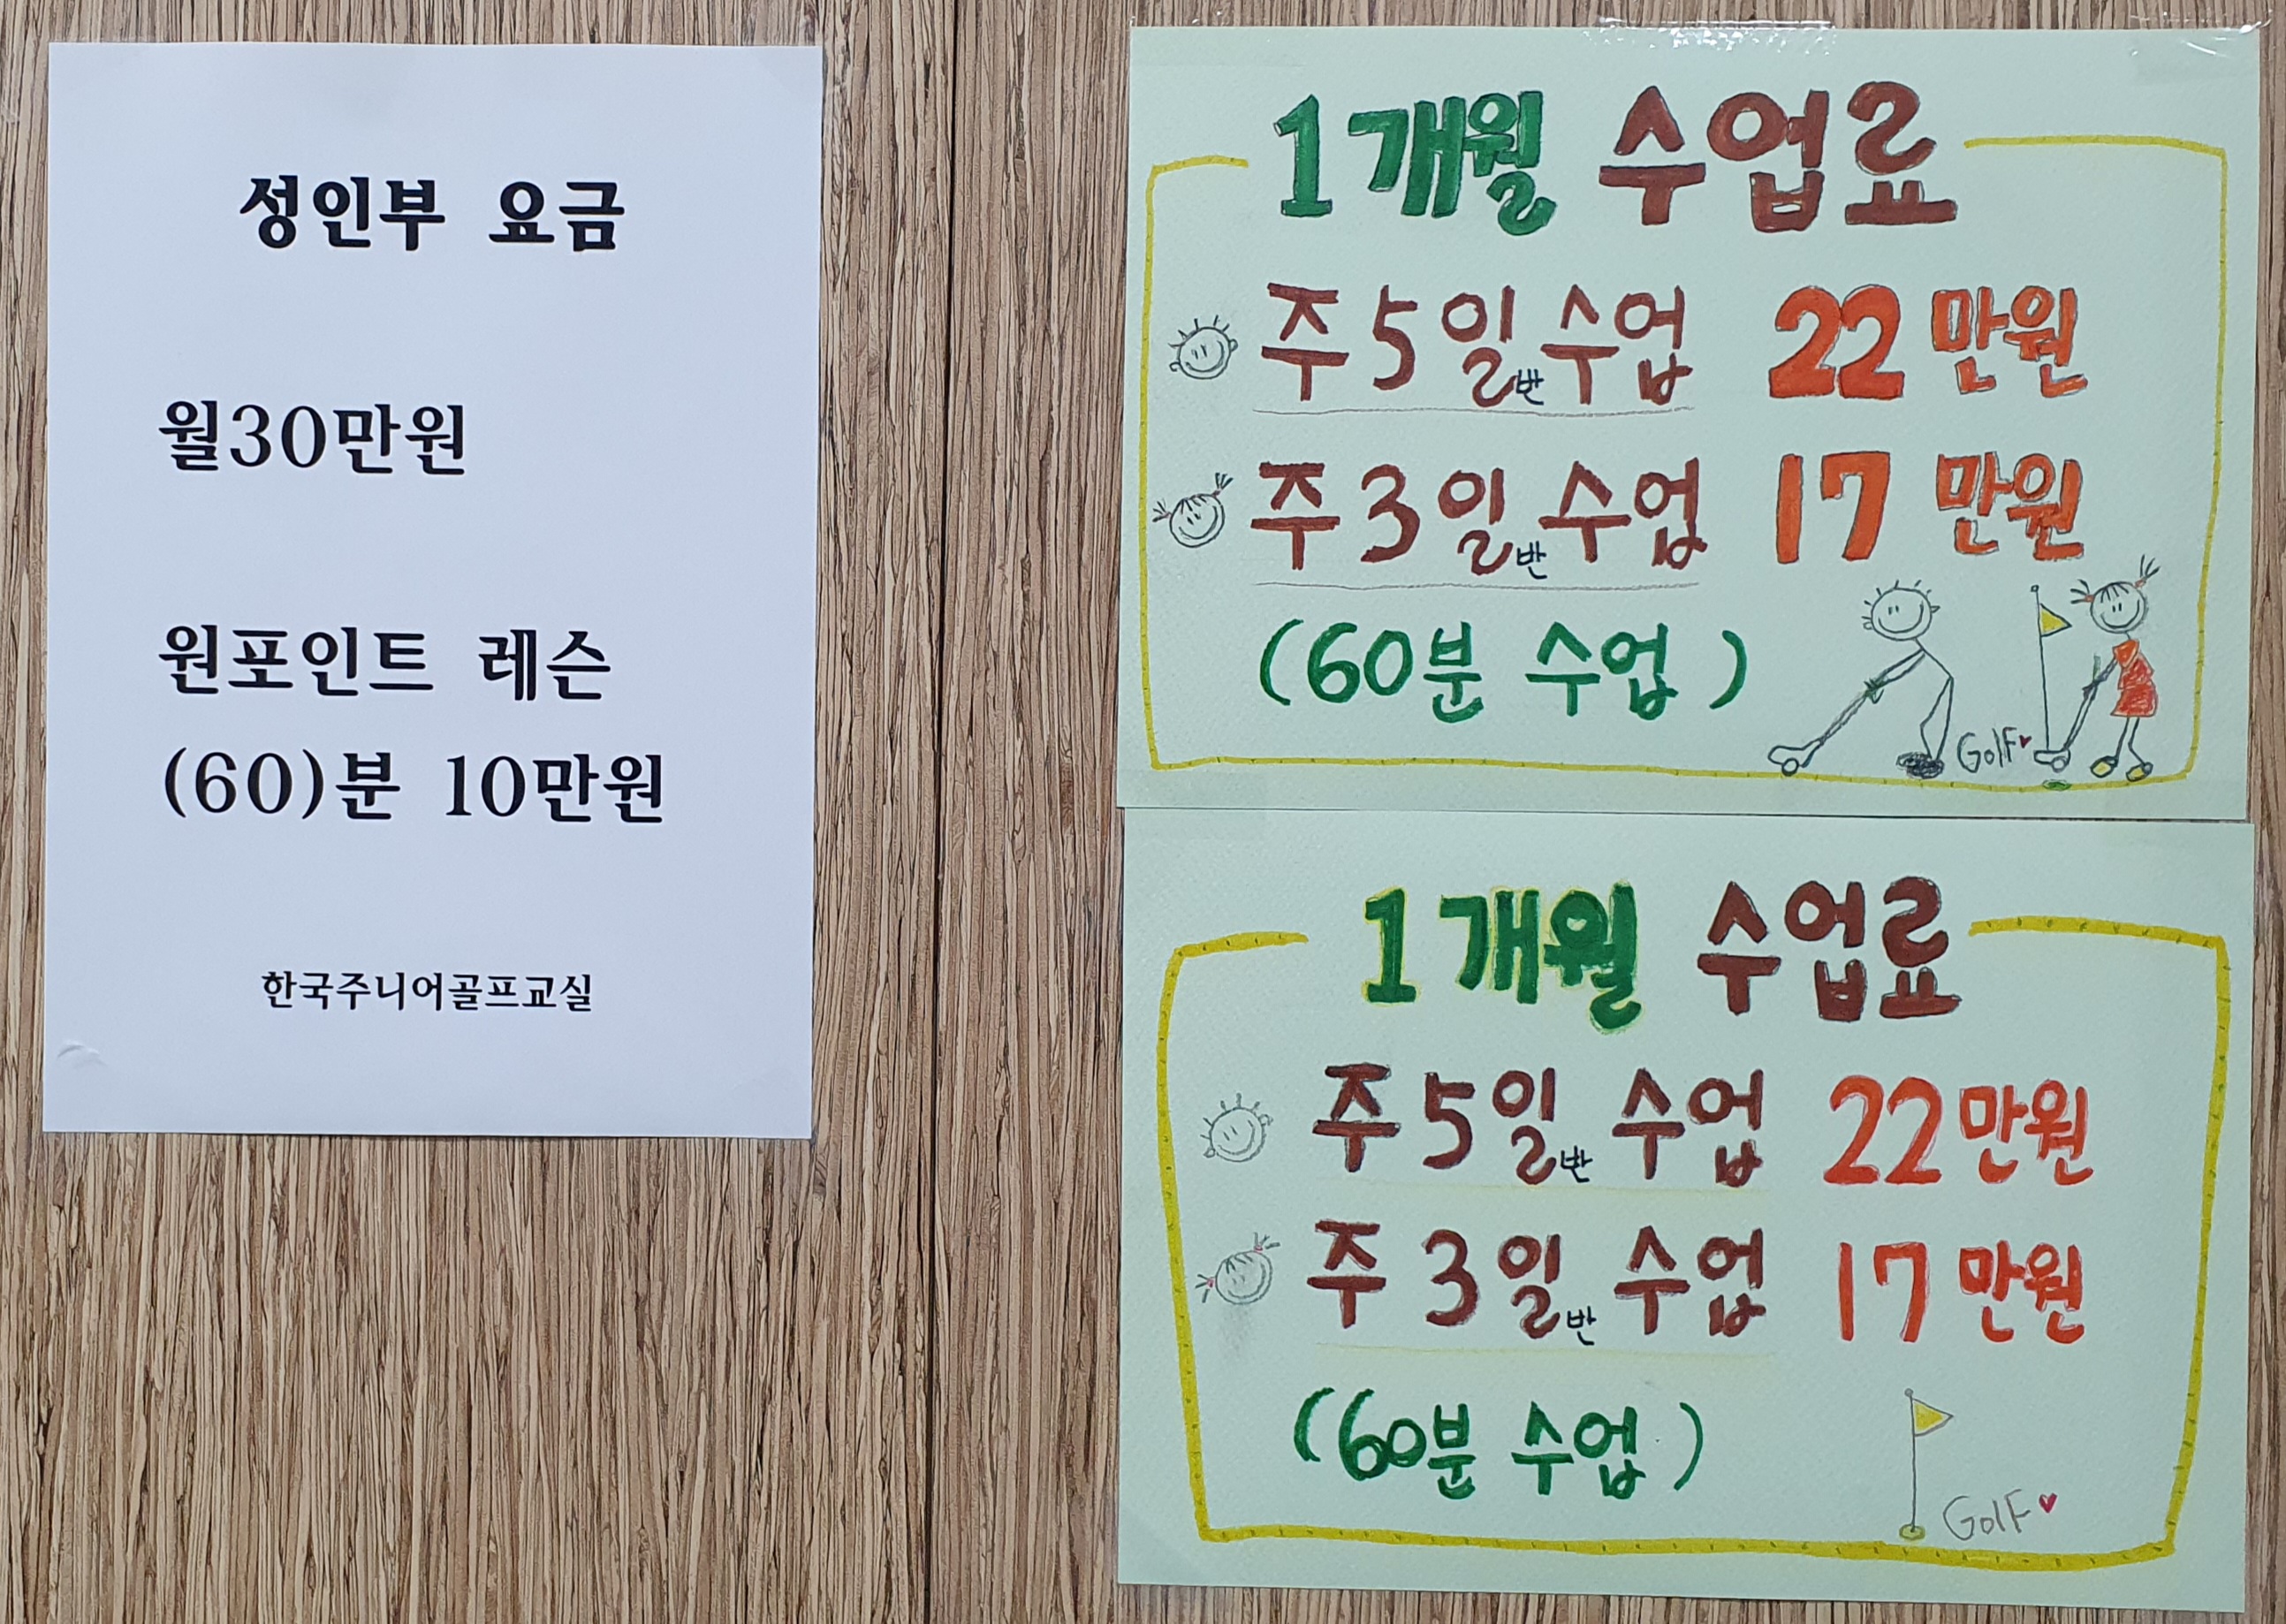 성인부 요금
월30만원
원포인트 레슨
(60)분 10만원
한국주니어골프교실
1개월 수업료
주5일반수업 22만원
주3일반수업 17만원
(60분 수업)
GOlF
1개월 수업료
주5일반 수업 22만원
주3일반 수업 17만원
(60분 수업)
GOlF